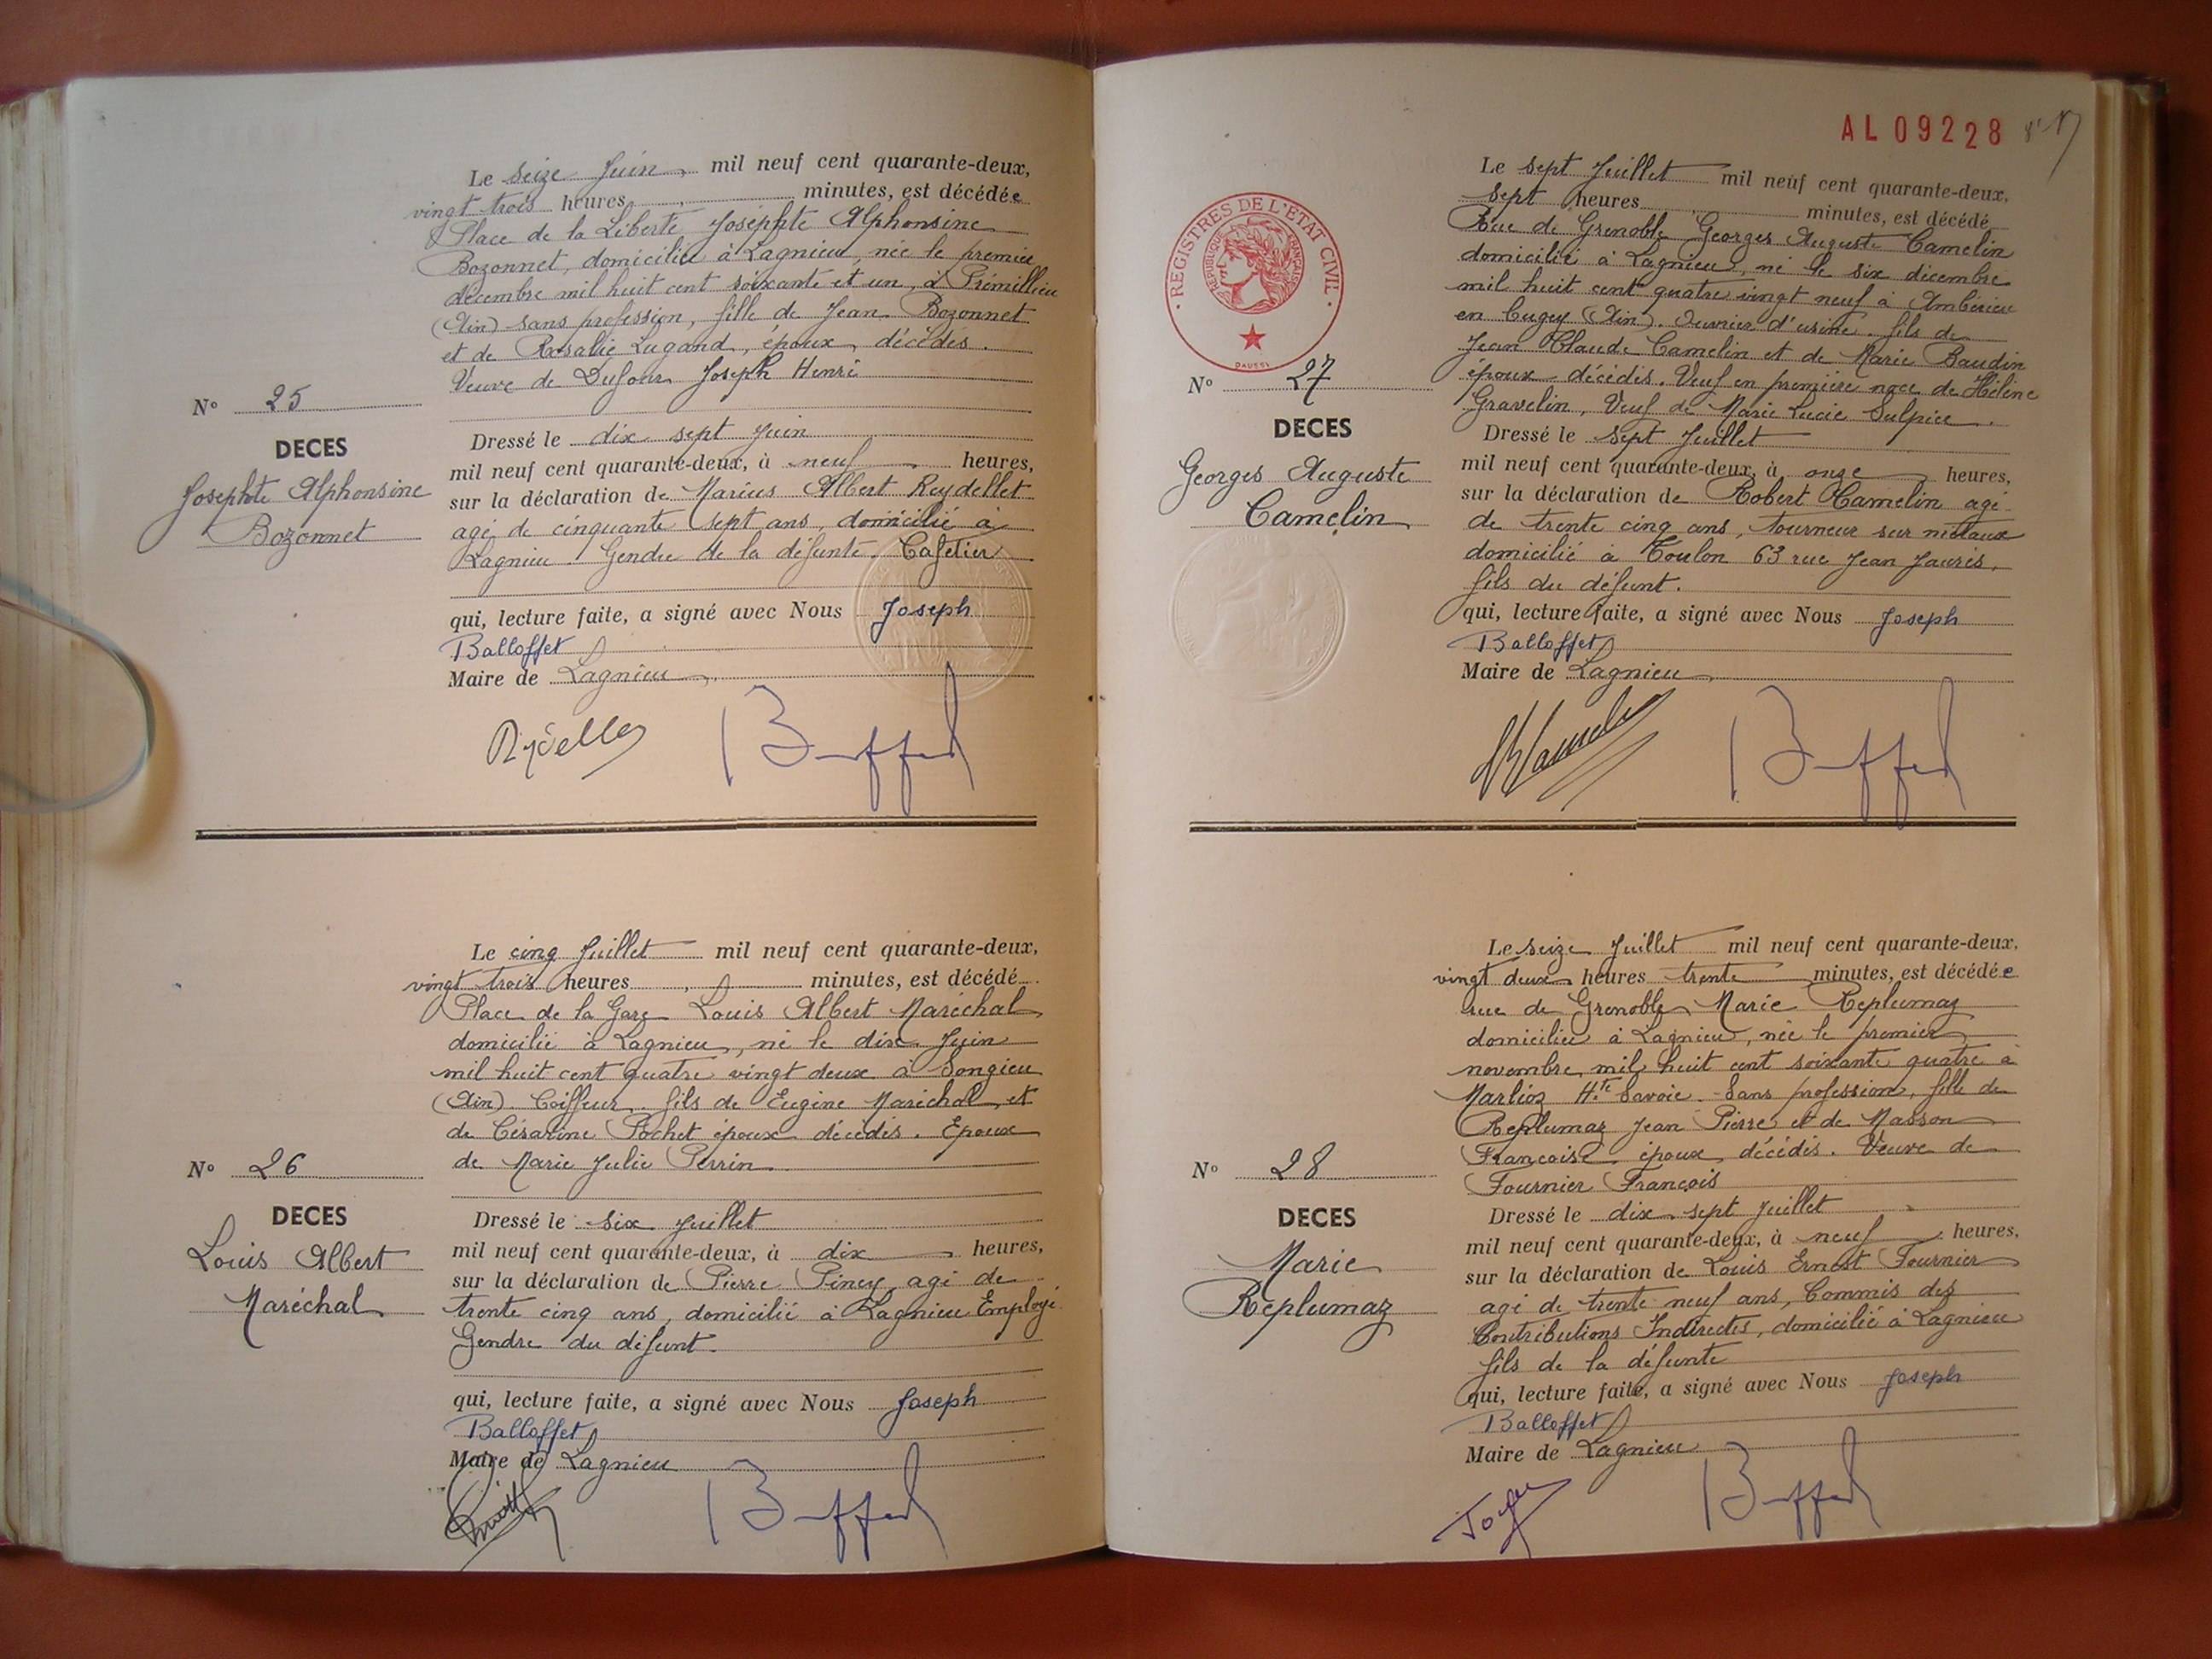 Le seize Juin mil neuf cent quarante-deux,
vingt trois heures, minutes, est décédée
Place de la Liberté Josephte Alphonsine
Bozonnet, domiciliée à Lagnieu, née le premier
décembre mil huit cent soixante et un, à Prémillieu
(Ain) sans profession, fille de Jean Bozonnet
et de Rosalie Lugand, époux décédés.
Veuve de Dufour Joseph Henri
N° 25
DECES
Josephte Alphonsine
Bozonnet
Dressé le dix sept Juin
mil neuf cent quarante-deux, à neuf heures,
sur la déclaration de Marius Albert Reydellet
agé de cinquante sept ans, domicilié à
Lagnieu. Gendre de la défunte. Cafetier
qui, lecture faite, a signé avec Nous Joseph
Balloffet
Maire de Lagnieu
Le cinq Juillet mil neuf cent quarante-deux,
vingt trois heures, minutes, est décédé
Place de la Gare Louis Albert Maréchal
domicilié à Lagnieu, né le dix Juin
mil huit cent quatre vingt deux à Songieu
(Ain). Coiffeur. fils de Eugène Maréchal et
de Césarine Pochet époux décédés. Epoux
de Marie Julie Perrin
N° 26
DECES
Louis Albert
Maréchal
Dressé le six Juillet
mil neuf cent quarante-deux, à dix heures,
sur la déclaration de Pierre Piney agé de
trente cinq ans, domicilié à Lagnieu Employé
Gendre du défunt.
qui, lecture faite, a signé avec Nous Joseph
Balloffet
Maire de Lagnieu
AL 09228
REGISTRES DE L'ETAT CIVIL
REPUBLIQUE FRANÇAISE
Le sept Juillet mil neuf cent quarante-deux,
sept heures minutes, est décédé
Rue de Grenoble Georges Auguste Camelin
domicilié à Lagnieu, né le six décembre
mil huit cent quatre vingt neuf à Ambérieu
en Bugey (Ain). Ouvrier d'usine. fils de
Jean Claude Camelin et de Marie Baudin
époux décédés. Veuf en première noce de Hélène
Gravelin, Veuf de Marie Lucie Sulpice.
N° 27
DECES
Georges Auguste
Camelin
Dressé le sept Juillet
mil neuf cent quarante-deux, à onze heures,
sur la déclaration de Robert Camelin agé
de trente cinq ans, tourneur sur métaux
domicilié à Toulon 63 rue Jean Jaurès,
fils du défunt.
qui, lecture faite, a signé avec Nous Joseph
Balloffet
Maire de Lagnieu
Le seize Juillet mil neuf cent quarante-deux,
vingt deux heures trente minutes, est décédée
rue de Grenoble Marie Replumaz
domiciliée à Lagnieu, née le premier
novembre mil huit cent soixante quatre à
Marlioz Hte Savoie. Sans profession, fille de
Replumaz Jean Pierre et de Masson
Françoise, époux décédés. Veuve de
Fournier François
N° 28
DECES
Marie
Replumaz
Dressé le dix sept Juillet
mil neuf cent quarante-deux, à neuf heures,
sur la déclaration de Louis Ernest Fournier
agé de trente neuf ans, Commis des
Contributions Indirectes, domicilié à Lagnieu
fils de la défunte
qui, lecture faite, a signé avec Nous Joseph
Balloffet
Maire de Lagnieu